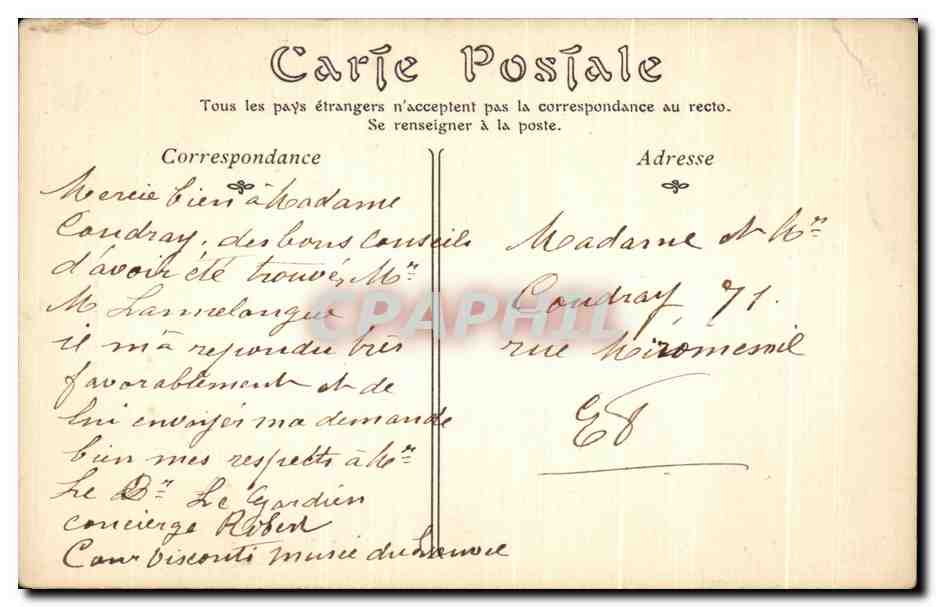 Carte Postale
Tous les pays étrangers n'acceptent pas la correspondance au recto.
Se renseigner à la poste.
Correspondance
Mercie bien à Madame
Coudray, des bons Conseils
d'avoir été trouvé, Mr
M Lannelongue
il m'à repondu très
favorablement et de
lui envoyér ma demande
bien mes respects à Mr
Le Dr Le Gardien
concierge Robert
Cour Visconti Musée du Louvre
Adresse
Madame et Mr
Coudray, 71.
rue Miromesnil
CPAPHIL